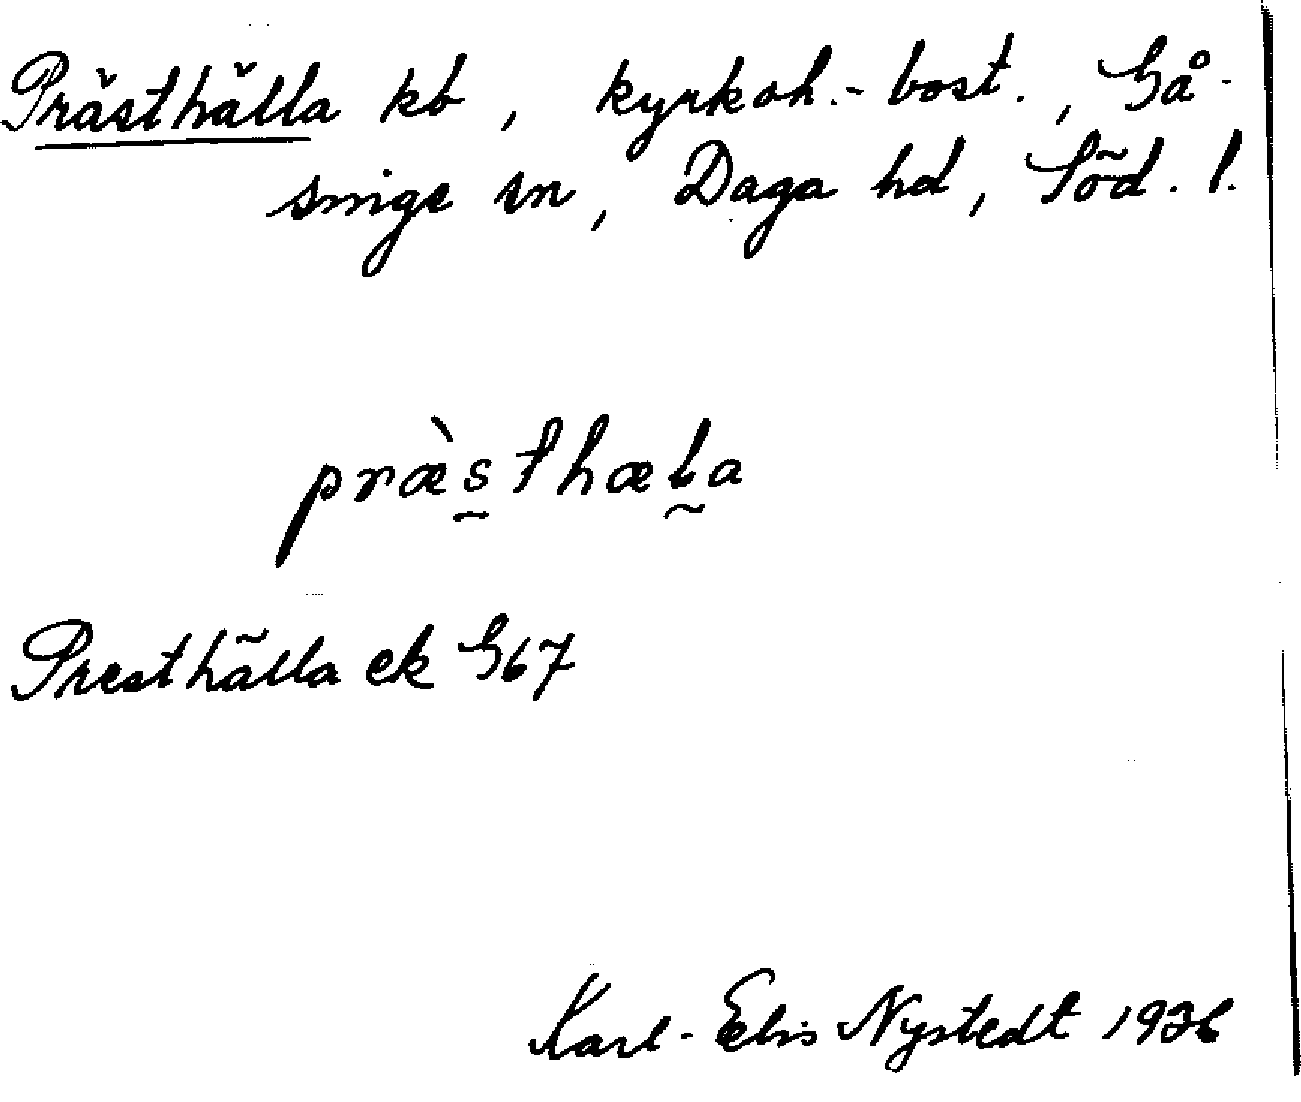 Prästhälla kb, kyrkoh.-bost., Gå-
singe sn, Daga hd, Söd. l.
præ̀s̰thæḭla
Presthälla ek G67
Karl-Elis Nystedt 1936